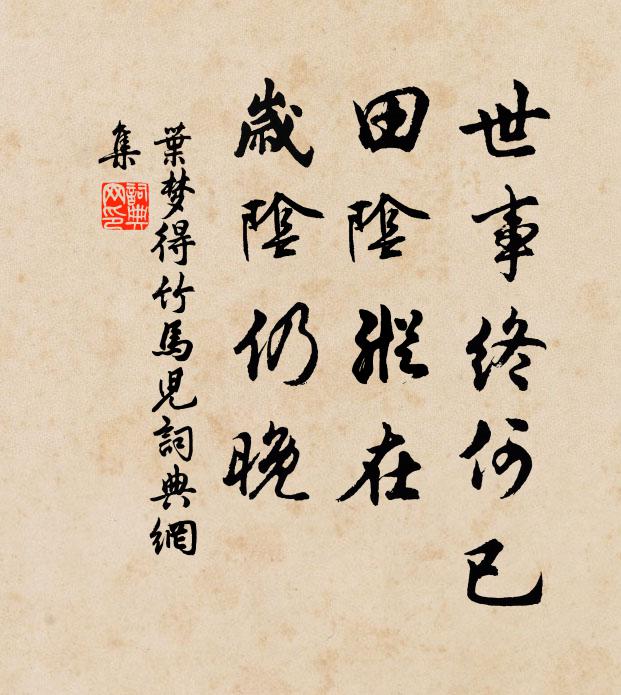 世事終何已
田陰縱在
歲陰仍晚
葉梦得竹馬児詞典網
集
詞典
网印